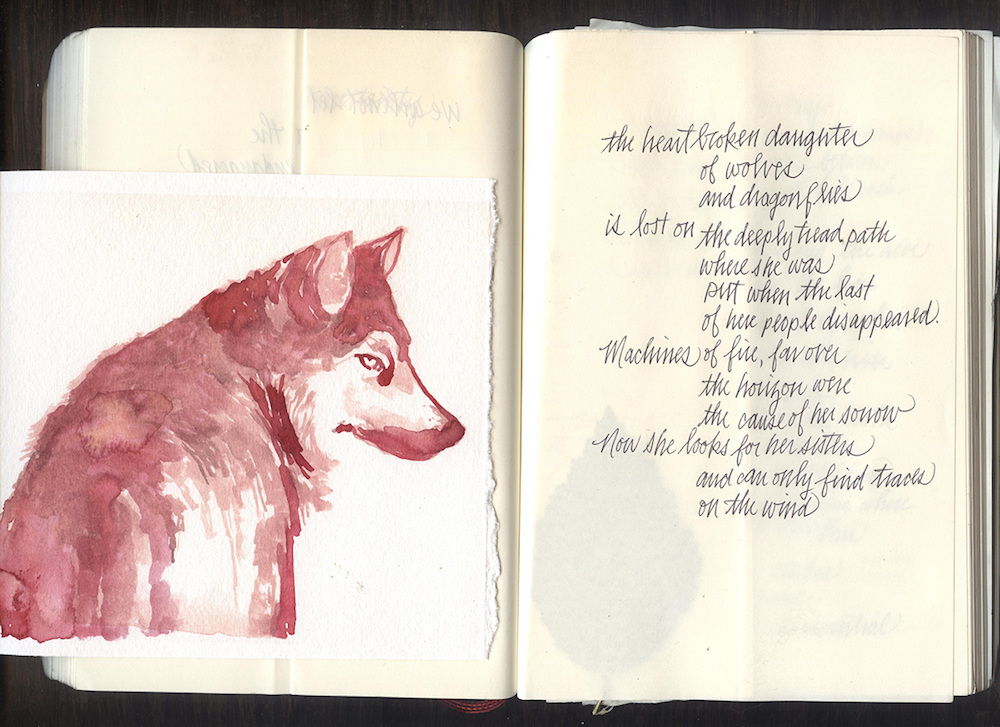 the
the heartbroken daughter
of wolves
and dragonflies
is lost on the deeply tread path
where she was
put when the last
of here people disappeared.
Machines of fire, far over
the horizon were
the cause of her sorrow
Now she looks for her sisters
and can only find traces
on the wind